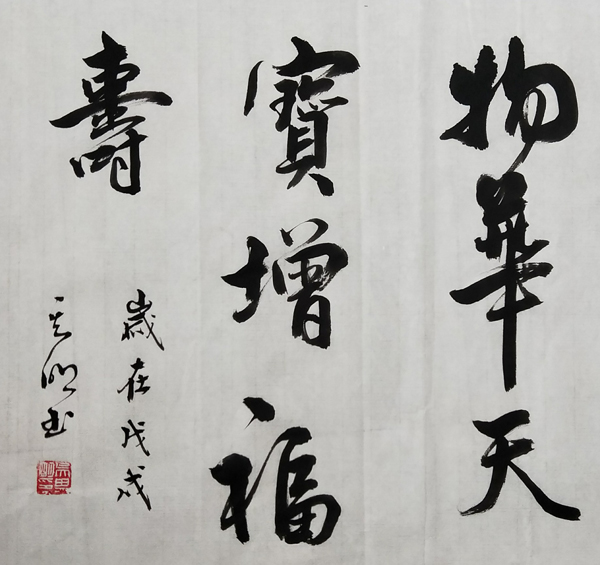 物華天
寶增福
壽
歲在戊戌